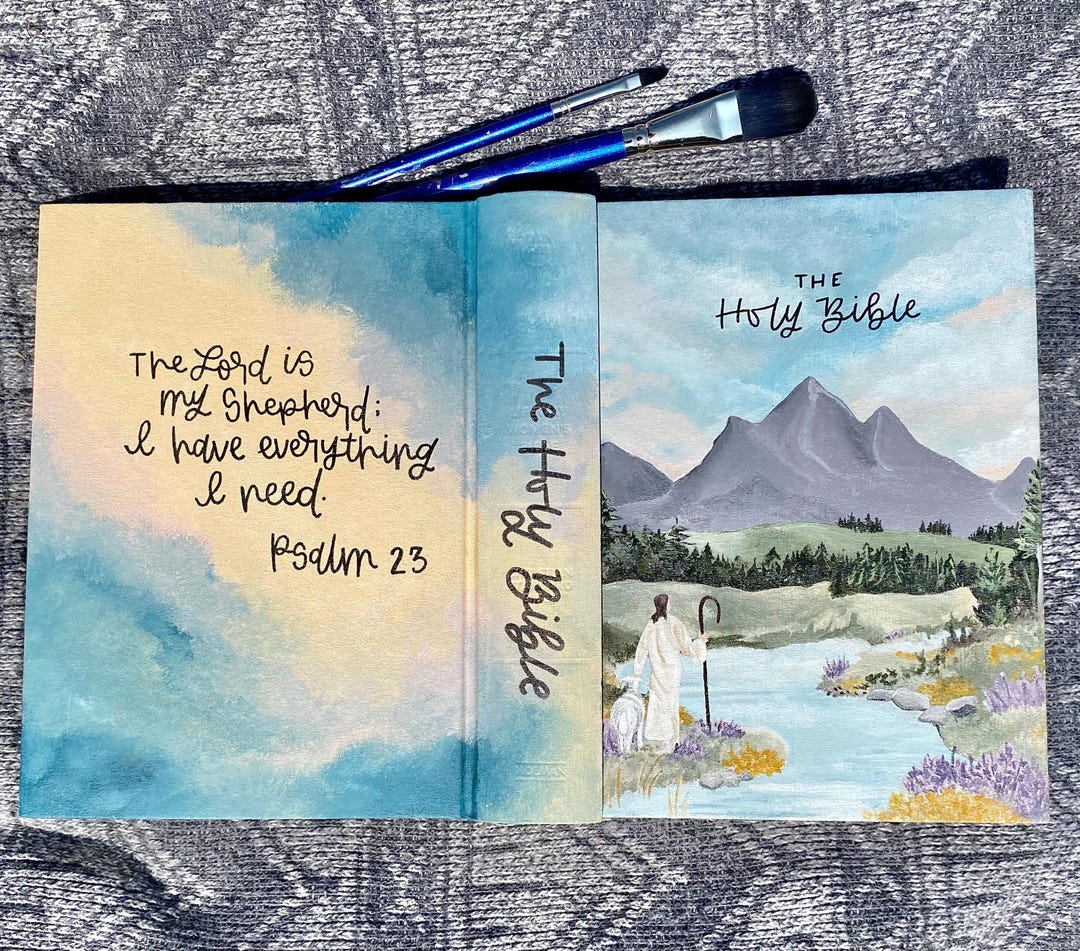 The Lord is
my Shepherd;
I have everything
I need.
Psalm 23
The Holy Bible
THE
Holy Bible